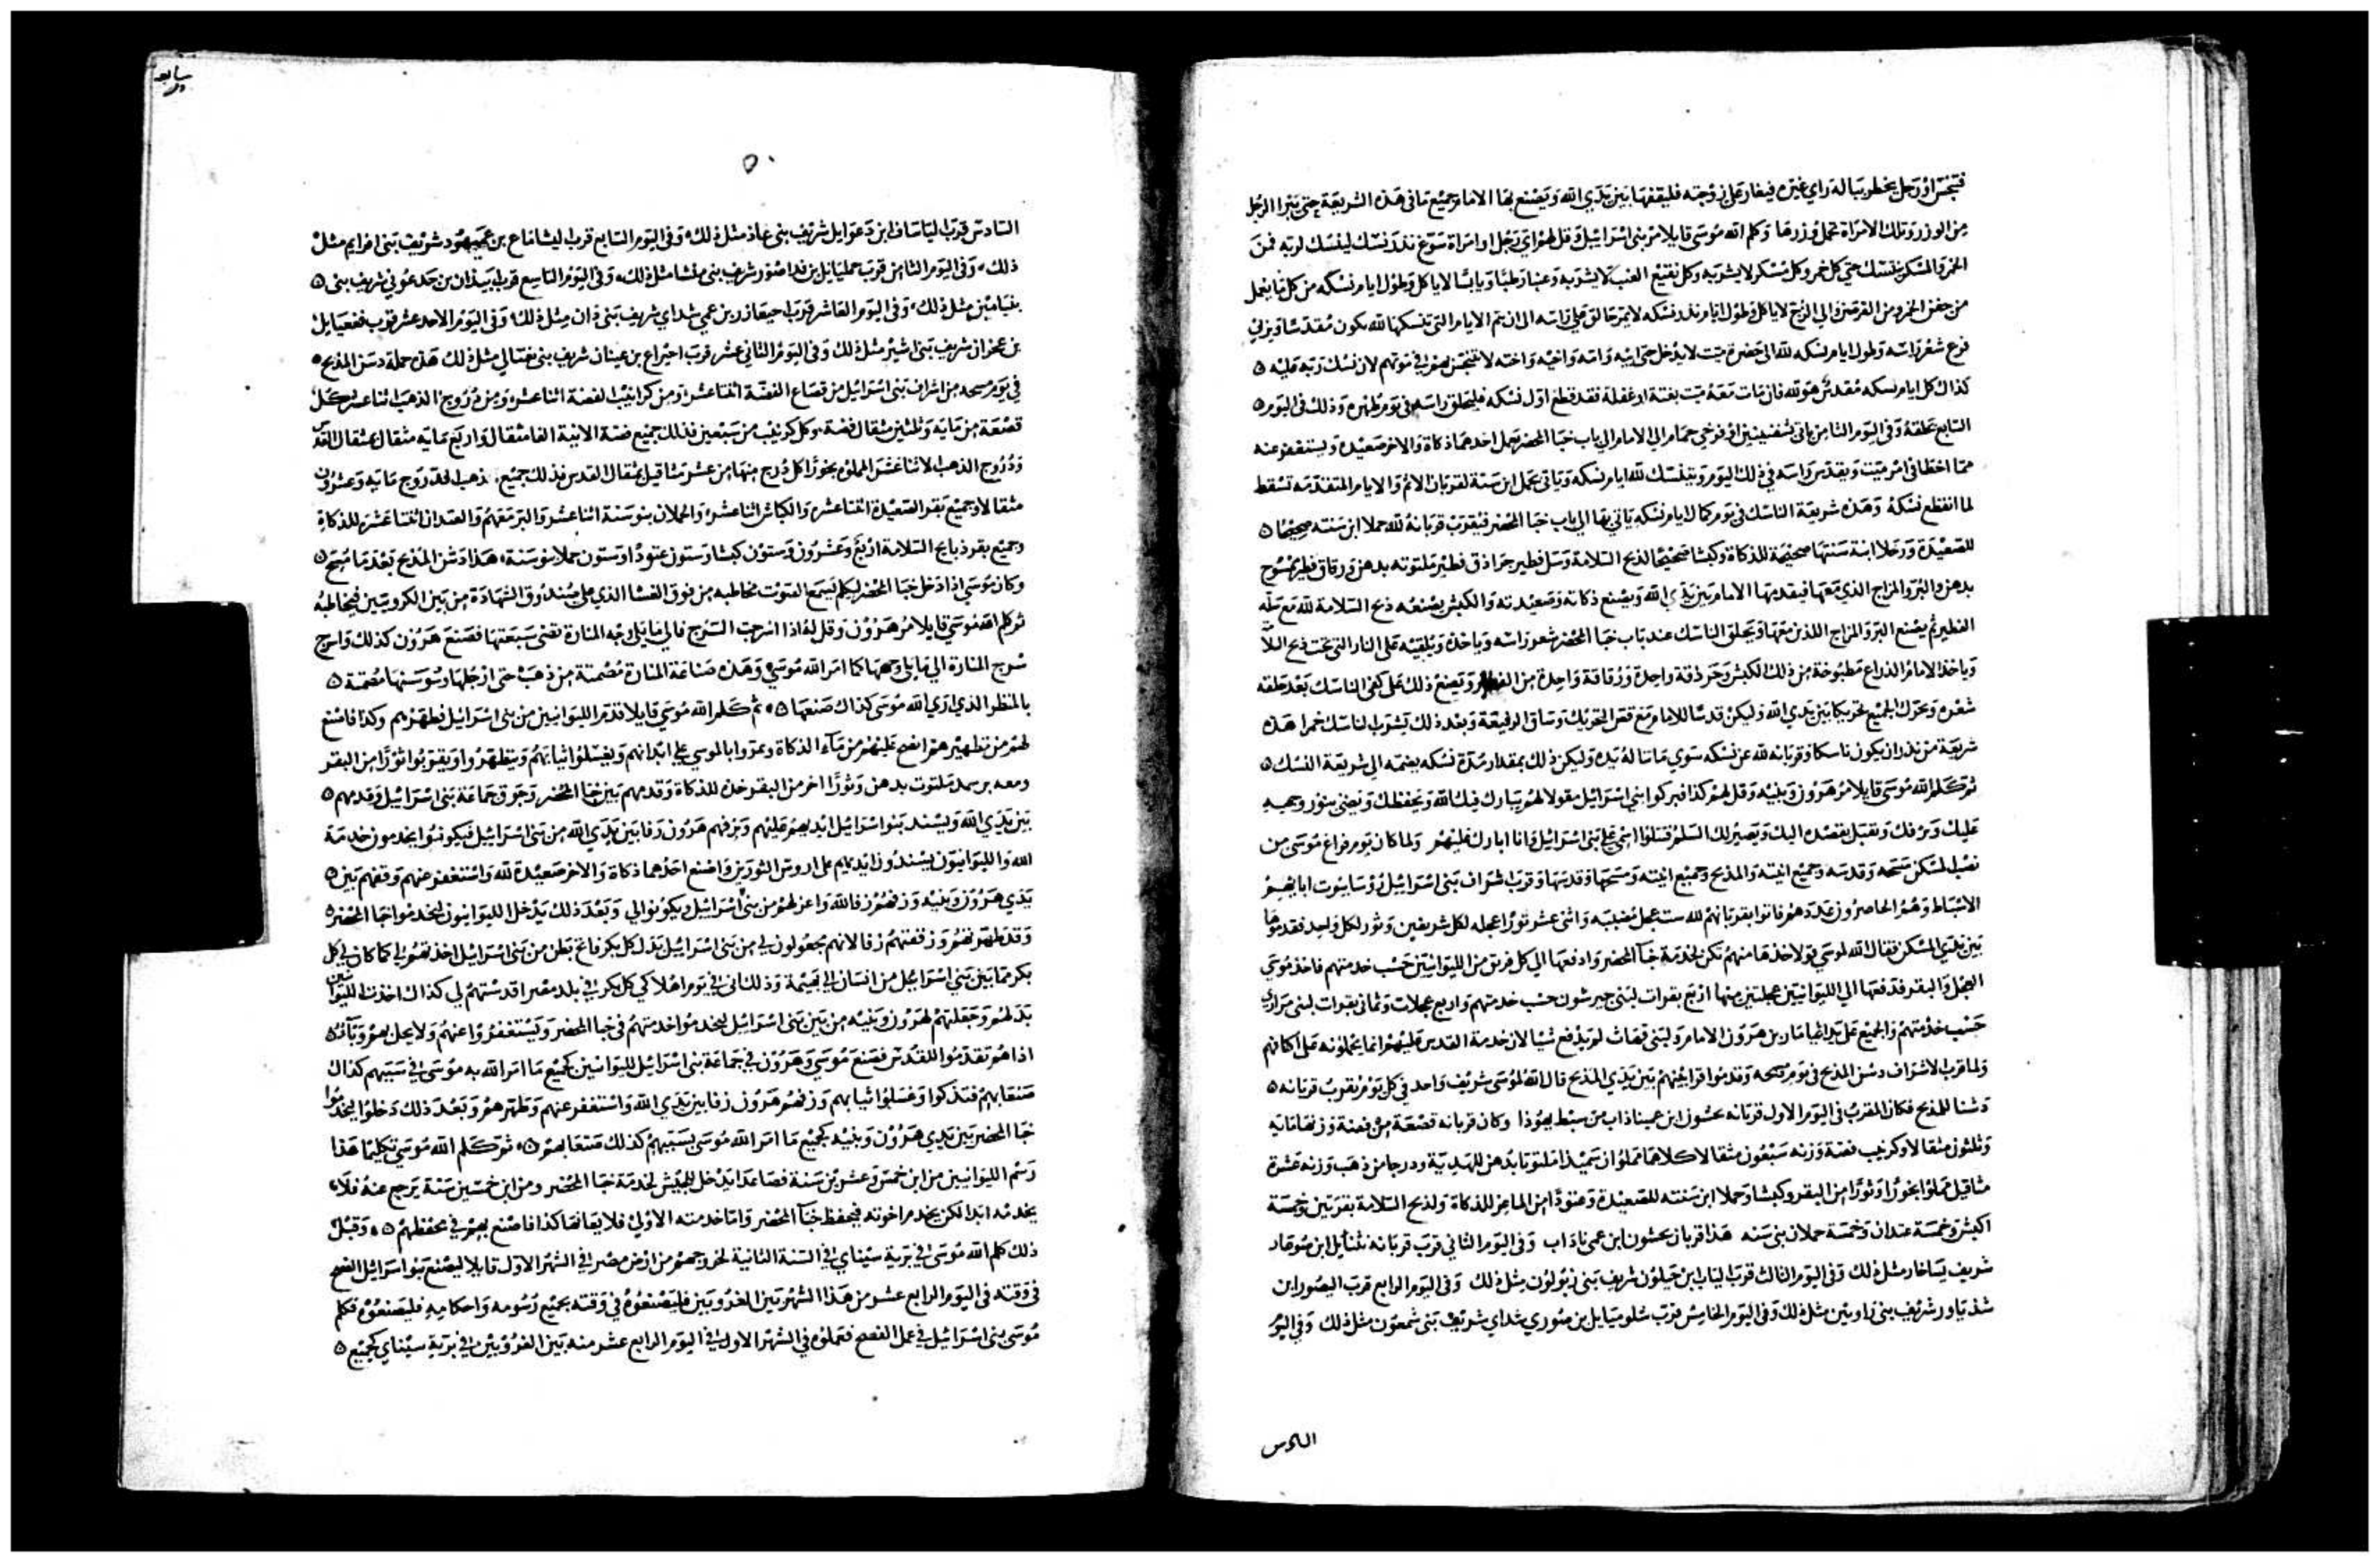 فتنجس او رجل يخطر بباله راي غيره فيغار على زوجته فليقفها بين يدي الله ويصنع بها الامام جميع ما في هذه الشريعة حتى يبرا الرجل
من الوزر وتلك الامراة تحمل وزرها وكلم الله موسى قايلا مر بني اسرائيل وقل لهم اي رجل او امراة سوغ نذر نسك لينسك لربه فمن
الخمر والمسكر يتنسك حتى كل خمر وكل مسكر لا يشربه وكل نقيع العنب لا يشربه وعنبا رطبا ويابسا لا ياكل وطول ايام نسكه من كل ما يعمل
من جفن الخمر من القرمز والي الزج لا ياكل وطول ايام نذر نسكه لا يمر حالق على راسه الى ان تتم الايام التي تنسكها لله يكون مقدسا ويربي
فرع شعر راسه وطول ايام نسكه لله الى حضرة ميت لا يدخل حتى ابيه وامه واخيه واخته لا يتنجس بهم في موتهم لان نسك ربه عليه
كذاك كل ايام نسكه مقدس هو لله فان مات معه ميت بغتة او غفلة فقد قطع اول نسكه فليحلق راسه في يوم طهره وذلك في اليوم
السابع يحلقه وفي اليوم الثامن ياتي بشفنينين او فرخي حمام الى الامام الى باب خبا المحضر يعمل احدهما ذكاة والاخر صعيدة ويستغفر عنه
مما اخطا في امر ميت ويقدس راسه في ذلك اليوم ويتنسك لله ايام نسكه وياتي بحمل ابن سنة لقربان الاثم والايام المتقدمة تسقط
لما انقطع نسكه وهذه شريعة الناسك في يوم كمال ايام نسكه ياتي بها الى باب خبا المحضر فيقرب قربانه لله حملا ابن سنته صحيحا
للصعيدة ورخلا ابنة سنتها صحيحة للذكاة وكبشا صحيحا لذبح السلامة وسل فطير جرادق فطير ملتوتة بدهن ورقاق فطير ممسوح
بدهن والبر والمزاج الذي معها فيقدمها الامام بين يدي الله ويصنع ذكاته وصعيدته والكبش يصنعه ذبح السلامة لله مع سلة
الفطير ثم يصنع البر والمزاج اللذين معها ويحلق الناسك عند باب خبا المحضر شعور راسه وياخذه ويلقيه على النار التي تحت ذبح
وياخذ الامام الذراع مطبوخة من ذلك الكبش وجردقة واحدة ورقاقة واحدة من ويضع ذلك على كفي الناسك بعد حلقه
شعره ويحرك الجميع تحريكا بين يدي الله وليكن قدسا للامام مع قص التحريك وساق الرفيعة وبعد ذلك يشرب الناسك خمرا هذه
شريعة من نذر ان يكون ناسكا وقربانه لله عن نسكه سوي ما تناله يده وليكن ذلك بمقدار مدة نسكه يضمه الى شريعة النسك
ثم كلم الله موسى قايلا مر هرون وبنيه وقل لهم كذا فبركوا بني اسرائيل مقولا لهم يبارك فيك الله ويحفظك ويضي بنور وجهه
عليك ويرفك ويقبل بقصده اليك ويصير لك السلم فتلوا اسمي على بني اسرائيل وانا ابارك عليهم ولما كان يوم فراغ موسى من
نصب المسكن مسحه وقدسه وجميع انيته والمذبح وجميع انيته ومسحها وقدسها وقرب شراف بني اسرائيل رؤسا بيوت ابايهم
الاسباط وهم الحاصرون عددهم فاتوا بقربانهم لله ست عجل مغلبة واثني عشر ثورا عجله لكل شريفين وثور لكل واحد فقدموها
بين يدي المسكن فقال الله لموسى قولا خذها منهم تكن لخدمة خبا المحضر وادفعها الى كل فريق من الليوانيين حسب خدمتهم فاخذ موسى
العجل والبقر فدفعها الى الليوانيين عجلتين منها اربع بقرات لبني جيرشون حسب خدمتهم واربع عجلات وثماني بقرات لبني مراري
حسب خدمتهم والجميع على يد ايثامار بن هرون الامام ولبني قهاث لم يدفع شيا لان خدمة القدس عليهم انما يحملونه على اكتافهم
ولما قرب الاشراف دشن المذبح في يوم مسحه وقدموا قرابينهم بين يدي المذبح قال الله لموسى شريف واحد في كل يوم يقرب قربانه
دشنا للمذبح فكان المقرب في اليوم الاول قربانه نحشون ابن عميناذاب من سبط يهوذا وكان قربانه قصعة من فضة وزنها مايه
وثلثون مثقالا وكرنيب فضة وزنه سبعون مثقالا كلاهما مملوان سميذا ملتوتا بدهن للهدية ودرجا من ذهب وزنه عشرة
مثاقيل مملوا بخورا وثورا من البقر وكبشا وحملا ابن سنته للصعيدة وعتودا من الماعز للذكاة ولذبح السلامة بقرتين وخمسة
اكبش وخمسة عتدان وخمسة حملان بني سنه هذا قربان نحشون ابن عمي ناذاب وفي اليوم الثاني قرب قربانه نثنايل ابن صوعار
شريف يساخار مثل ذلك وفي اليوم الثالث قرب الياب ابن حيلون شريف بني زبولون مثل ذلك وفي اليوم الرابع قرب اليصور ابن
شذياور شريف بني راوبين مثل ذلك وفي اليوم الخامس قرب شلوميايل بن صوري شداي شريف بني شمعون مثل ذلك وفي اليوم
السادس
٥٠
السادس قرب لياساف ابن دعوايل شريف بني غاذ مثل ذلك وفي اليوم السابع قرب ليشاماع بن عميهود شريف بني افرايم مثل
ذلك وفي اليوم الثامن قرب جمليايل بن فداصور شريف بني منشا مثل ذلك وفي اليوم التاسع قرب ابيذان بن جدعوني شريف بني
بنيامين مثل ذلك وفي اليوم العاشر قرب احيعازر بن عمي شداي شريف بني ذان مثل ذلك وفي اليوم الاحد عشر قرب فغعيايل
بن عخران شريف بني اشير مثل ذلك وفي اليوم الثاني عشر قرب احيراع بن عينان شريف بني نفتالي مثل ذلك هذه جملة دشن المذبح
في يوم مسحه من اشراف بني اسرائيل من قصاع الفضة اثنتا عشر ومن كرانيب الفضة اثنا عشر ومن دروج الذهب اثنا عشر كل
قصعة من مايه وثلثين مثقال فضة وكل كرنيب من سبعين فذلك جميع فضة الانية الفا مثقال واربع مايه مثقال بمثقال القدس
ودروج الذهب الاثنا عشر المملوه بخورا كل درج منها من عشر مثاقيل بمثقال القدس فذلك جميع ذهب الدروج مايه وعشرون
مثقالا وجميع بقر الصعيدة اثنتا عشر والكباش اثنا عشر والحملان بنو سنة اثنا عشر والبر معهم والعتدان اثنتا عشر للذكاة
وجميع بقر ذبايح السلامة اربع وعشرون وستون كبشا وستون عتودا وستون حملا بنو سنة هذا دشن المذبح بعد ما مسح
وكان موسى اذا دخل خبا المحضر ليكلم يسمع الصوت مخاطبه من فوق الغشا الذي على صندوق الشهادة من بين الكروبيين فيخاطبه
ثم كلم الله موسى قايلا مر هرون وقل له اذا اسرجت السرج فالي ما يلي وجه المنارة تضي سبعتها فصنع هرون كذلك واسرج
سرج المنارة الى ما يلي وجهها كما امر الله موسى وهذه صناعة المنارة مصمتة من ذهب حتى ارجلها وسوسنها مصمتة
بالمنظر الذي اري الله موسى كذاك صنعها ثم كلم الله موسى قايلا قدم الليوانيين من بني اسرائيل فطهرهم وكذا فاصنع
لهم من تطهيرهم انضح عليهم من ماء الذكاة ويمروا بالموسي على ابدانهم ويغسلوا ثيابهم ويتطهروا ويقربوا ثورا من البقر
ومعه بر سميد ملتوت بدهن وثورا اخر من البقر خذه للذكاة وقدمهم بين خبا المحضر وجوق جماعة بني اسرائيل وقدمهم
بين يدي الله ويسند بنو اسرائيل ايديهم عليهم ويزفهم هرون زفا بين يدي الله من بني اسرائيل فيكونوا يخدمون خدمة
الله والليوانيون يسندون ايديهم على اروس الثورين واصنع احدهما ذكاة والاخر صعيدة لله واستغفر عنهم وقفهم بين
يدي هرون وبنيه وزفهم زفا لله واعزلهم من بني اسرائيل ويكونوا لي وبعد ذلك يدخل الليوانيون ليخدموا خبا المحضر
وقد طهرتهم وزففتهم زفا لانهم مجعولون لي من بني اسرائيل بدل كل بكر فاتح بطن من بني اسرائيل اخذتهم لي كما كان لي كل
بكر مما بين بني اسرائيل من انسان الى بهيمة وذلك اني في يوم اهلاكي كل بكر في بلد مصر اقدستهم لي كذاك اخذت الليوانيين
بدلهم وجعلتهم لهرون وبنيه من بين بني اسرائيل ليخدموا خدمتهم في خبا المحضر ويستغفروا عنهم ولا يحل بهم وباء
اذا هم تقدموا للقدس فصنع موسى وهرون في جماعة بني اسرائيل لليوانيين كجميع ما امر الله به موسى في سببهم كذاك
صنعا بهم فتذكوا وغسلوا ثيابهم وزفهم هرون زفا بين يدي الله واستغفر عنهم وطهرهم وبعد ذلك دخلوا ليخدموا
خبا المحضر بين يدي هرون وبنيه كجميع ما امر الله موسى بسببهم كذلك صنعا بهم ثم كلم الله موسى تكليما هذا
رسم الليوانيين من ابن خمس وعشرين سنة فصاعدا يدخل للجيش لخدمة خبا المحضر ومن ابن خمسين سنة يرجع عنه فلا
يخدمه ابدا لكن يخدم اخوته فيحفظ خبا المحضر واما خدمته الاولى فلا يعانها كذا فاصنع بهم في محفظهم وقبل
ذلك كلم الله موسى في برية سيناي في السنة الثانية لخروجهم من ارض مصر في الشهر الاول قايلا ليصنع بنو اسرائيل الفصح
في وقته في اليوم الرابع عشر من هذا الشهر بين الغروبين فليصنعوه في وقته بجميع رسومه واحكامه فليصنعوه فكلم
موسى بني اسرائيل في عمل الفصح فعملوه في الشهر الاول في اليوم الرابع عشر منه بين الغروبين في برية سيناي كجميع